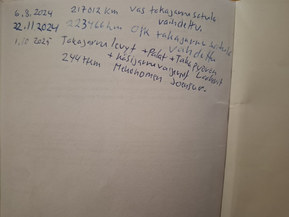 6.8.2024 217012 km vas takajarru satula vaihdettu.
22.11.2024 223466 km Oik takajarru satula vaihdettu
1.10.2025 Takajarru levyt + Palat + Takapyörän
244 km + käsijarruvaijerit
Menehomen Joonsuu.